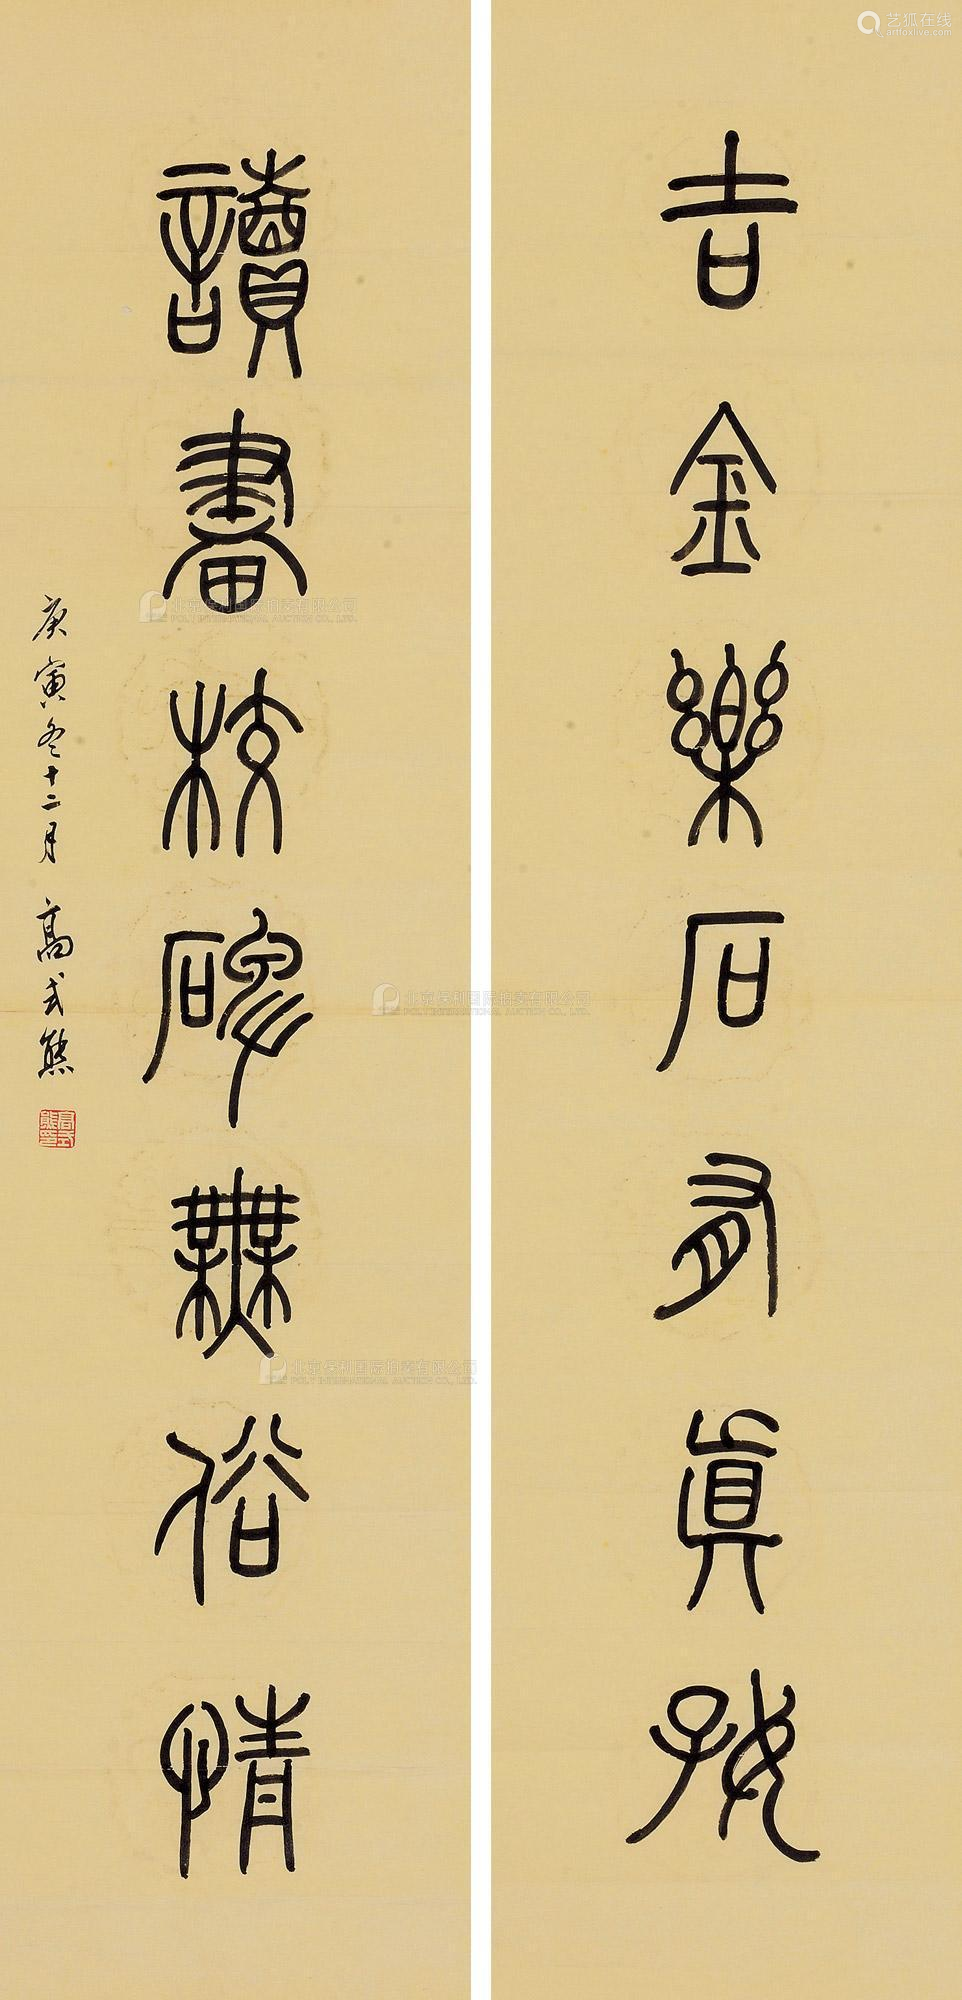 吉金樂石有真好
讀書校碑無俗情
庚寅冬十二月 高式熊
高式熊印
艺狐在线
artfoxlive.com
北京保利国际拍卖有限公司
POLY INTERNATIONAL AUCTION CO., LTD.
北京保利国际拍卖有限公司
POLY INTERNATIONAL AUCTION CO., LTD.
北京保利国际拍卖有限公司
POLY INTERNATIONAL AUCTION CO., LTD.